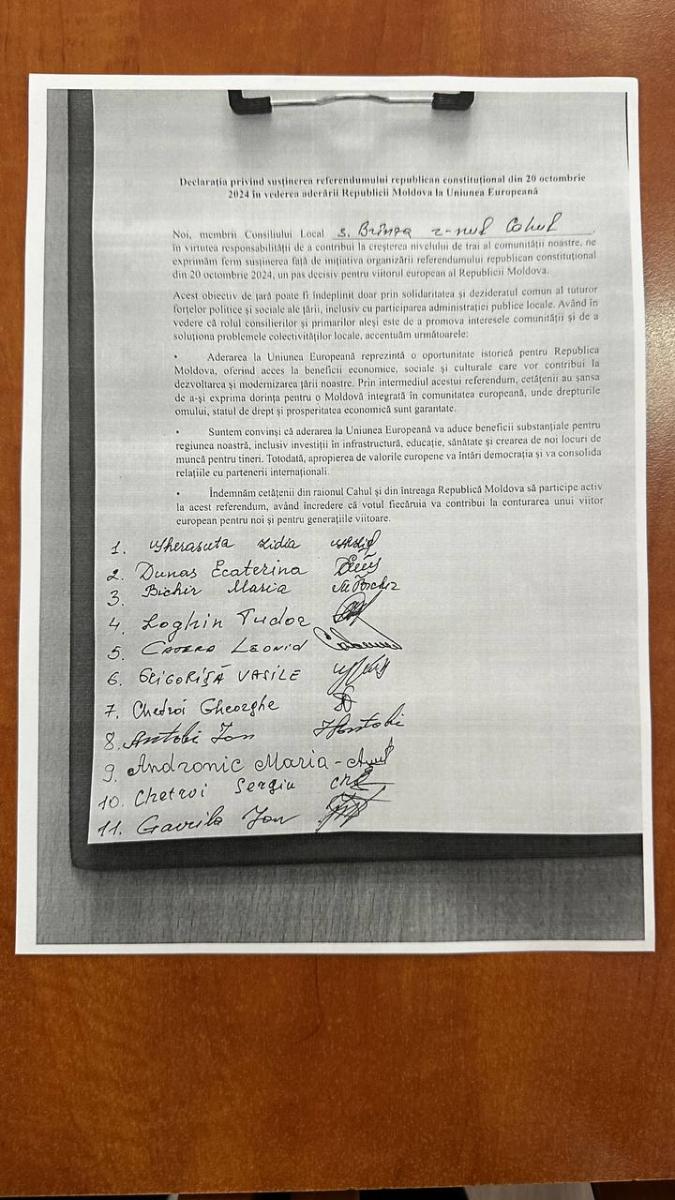 Declarația privind susținerea referendumului republican constituțional din 20 octombrie
2024 în vederea aderării Republicii Moldova la Uniunea Europeană
Noi, membrii Consiliului Local s. Brînza r-nul Cahul,
în virtutea responsabilității de a contribui la creșterea nivelului de trai al comunității noastre, ne
exprimăm ferm susținerea față de inițiativa organizării referendumului republican constituțional
din 20 octombrie 2024, un pas decisiv pentru viitorul european al Republicii Moldova.
Acest obiectiv de țară poate fi îndeplinit doar prin solidaritatea și dezideratul comun al tuturor
forțelor politice și sociale ale țării, inclusiv cu participarea administrației publice locale. Având în
vedere că rolul consilierilor și primarilor aleși este de a promova interesele comunității și de a
soluționa problemele colectivităților locale, accentuăm următoarele:
• Aderarea la Uniunea Europeană reprezintă o oportunitate istorică pentru Republica
Moldova, oferind acces la beneficii economice, sociale și culturale care vor contribui la
dezvoltarea și modernizarea țării noastre. Prin intermediul acestui referendum, cetățenii au șansa
de a-și exprima dorința pentru o Moldovă integrată în comunitatea europeană, unde drepturile
omului, statul de drept și prosperitatea economică sunt garantate.
• Suntem convinși că aderarea la Uniunea Europeană va aduce beneficii substanțiale pentru
regiunea noastră, inclusiv investiții în infrastructură, educație, sănătate și crearea de noi locuri de
muncă pentru tineri. Totodată, apropierea de valorile europene va întări democrația și va consolida
relațiile cu partenerii internaționali.
• Îndemnăm cetățenii din raionul Cahul și din întreaga Republică Moldova să participe activ
la acest referendum, având încredere că votul fiecăruia va contribui la conturarea unui viitor
european pentru noi și pentru generațiile viitoare.
1. Lidia
2. Dunas Ecaterina
3. Bichir Maria
4. Loghin Tudor
5. Leonid
6. GRIGORIȘĂ VASILE
7. Chetroi Gheorghe
8. Antohi Ion
9. Andronic Maria-
10. Chetroi Sergiu
11. Gavrila Ion